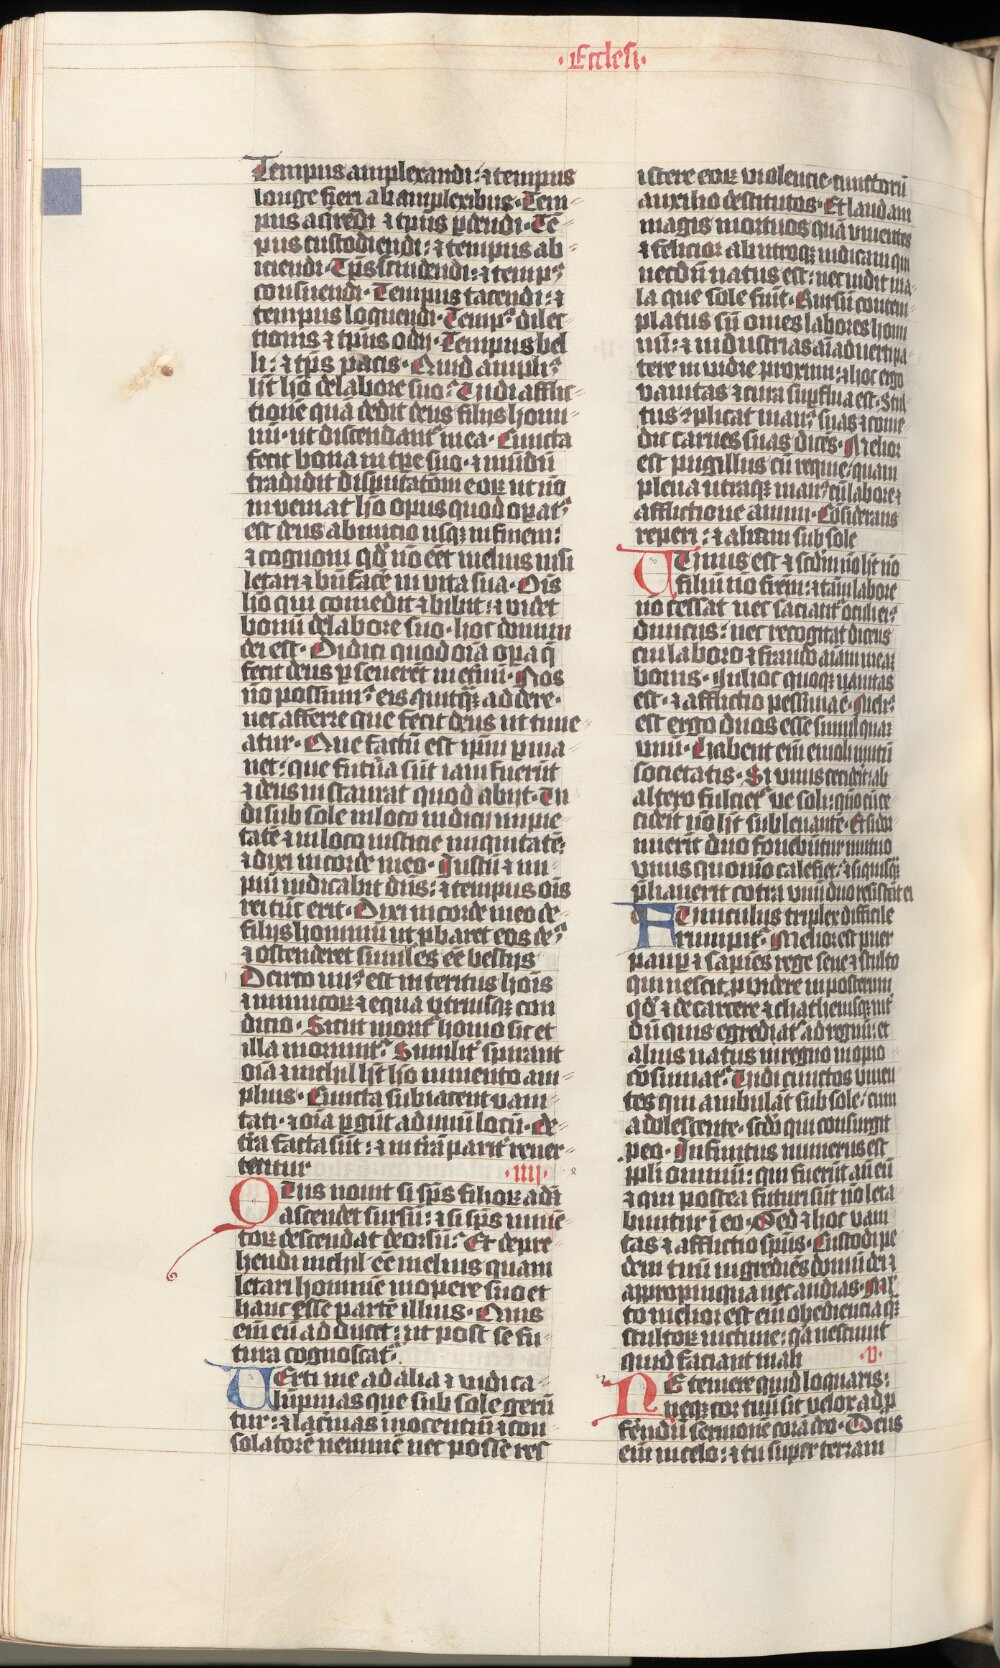 ·Ecclesi·
Tempus amplexandi: ⁊ tempus
longe fieri ab amplexibus· Tem
pus acq̄rēdi ⁊ tpus pdendi· Tē
pus custodiendi: ⁊ tempus ab
iciendi· Tp̄s scindendi: ⁊ temp⁹
consuendi· Tempus tacendi: ⁊
tempus loquendi· Temp⁹ dilec
tionis ⁊ tpus odij· Tempus bel
li: ⁊ tp̄s pacis· Quid ampli⁹
hȳ hō de labore suo? Uidi afflic
tionē quā dedit deus filijs homi
nū· ut distendant᷑ in ea· Cuncta
fecit bona in tpe suo· ⁊ mūdū
tradidit disputatōni eoꝝ ut nō
inveniat hō opus quod opat᷑
est deus ab inicio usqꝫ in finem:
⁊ cognoui qđ nō eēt melius nisi
letari ⁊ bn̄ facē in vita sua· Oīs
hō qui comedit ⁊ bibit: ⁊ videt
bonū de labore suo· hoc donum
dei est· Didici quod oīa opa q̄
fecit deus pseuerēt in etnū· Nos
nō possum⁹ eis quitqꝫ addere·
nec afferre que fecit deus ut time
atur· Que factū est ipm pma
net: que futura sūt iam fuerūt
⁊ deus instaurat quod abijt· Ui
di sub sole in loco iudicij impie
tatē ⁊ in loco iusticie iniquitatē:
⁊ dixi in corde meo· Justū ⁊ im
piū iudicabit dn̄s: ⁊ tempus oīs
rei tūc erit· Dixi in corde meo de
filijs hominū ut pbaret eos de⁹
⁊ ostenderet similes eē bestijs
Idcirco un⁹ est interitus hoīs
⁊ iumentoꝝ ⁊ equa utriusqꝫ con
dicio· Sicut morit᷑ homo sic et
illa moriunt᷑· Similit᷑ spirant
oīa ⁊ nichil hȳ hō iumento am
plius· Cuncta subiacent vani
tati· ⁊ oīa pgūt ad unū locū· De
tra facta sūt: ⁊ in trā parit᷑ reuer
tentur ·IIII·
QUis nouit si sp̄s filioꝝ adā
ascendet sursū: ⁊ si sp̄s iumē
toꝝ descendat deorsū? Et depre
hendi nichil eē melius quam
letari hominē in opere suo et
hanc esse partē illius· Quis
eim eū adducet: ut post se fu
tura cognoscat᷑·
UErti me ad alia ⁊ vidi ca
lūpnias que sub sole gerū
tur: ⁊ lacrimas inocentiū ⁊ con
solatorē neminē nec posse res
istere eoꝝ violencie cunctorū
auxilio destitutos· Et laudaui
magis mortuos quā viuentes
⁊ felicior ab utroqꝫ iudicaui qui
necdū natus est: nec vidit ma
la que sole fiūt· Rursū contem
platus sū omēs labores homi
nū: ⁊ industrias aīaduerti pa
tere in vidie proximi: ⁊ hoc ergo
vanitas ⁊ cura supflua est· Stul
tus ⁊plicat man⁹ suas ⁊ come
dit carnes suas dicēs· Melior
est pugillus cū requie: quam
plena utraqꝫ man⁹ cū labore ⁊
afflictione animi· Cōsiderans
reperi: ⁊ aliam sub sole
UNus est ⁊ scdm nō hȳ nō
filiū nō frem: ⁊ tām labore
nō cessat nec saciant᷑ oculi ei⁹
diuicijs: nec recogitat dicens
cui laboro ⁊ fraudo aīam meā
bonis· In hoc quoqꝫ vanitas
est· ⁊ afflictio pessima ē· Meli⁹
est ergo duos esse simul quā
unū· Habent eim emolumētū
societatis· Si unus ceciderit: ab
altero fulciet᷑· ve soli: quō cū ce
ciderit nō hȳ subleuantē· Et si dor
mierit duo fouebūtur mutuo
unus quomō calefiet: ⁊ si quisqꝫ
pualuerit cōtra unū duo resistūt ei
FUniculus triplex difficile
rumpit᷑· Melior est puer
paup ⁊ sapiēs rege sene ⁊ stulto
qui nescit puidere in posterum
qđ ⁊ de carcere ⁊ cathenisqꝫ int
dū quis egrediat᷑ ad regnū: et
alius natus in regno inopio
cōsumat᷑· Uidi cunctos viuen
tes qui ambulāt sub sole: cum
adolescente· scdo qui consurgit
p eo· Infinitus numerus est
ppli omniū: qui fuerūt aū eū
⁊ qui postea futuri sūt nō leta
buntur ī eo· Sed ⁊ hoc vani
tas ⁊ afflictio sp̄us· Custodi pe
dem tuū ingrediēs domū dei ⁊
appropinqua ut audias· Mul
to melior est eim obediencia qꝫ
stultoꝝ victime: qꝫ nesciunt
quid faciant mali ·V·
NE temere quid loquaris:
neqꝫ cor tuū sit velox ad p
ferendū sermonē corā deo· Deus
eim in celo: ⁊ tu super terram